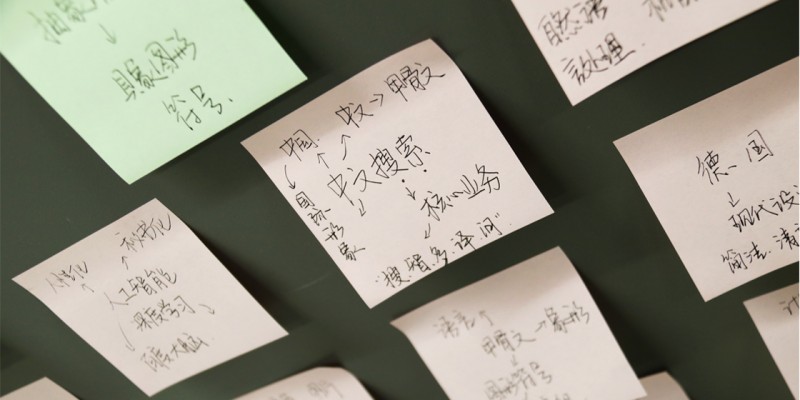 抽象
↓
具象图形
符号.
自然语
言处理.
中国. 中文→甲骨文
中文搜索
国际形象
核心业务
"搜、智、多、译、问"
德国
↓
现代设
简洁.清
人性化 科学化
人工智能
深度学习
百度大脑
语言↑
甲骨文→象形
↓
图形符号